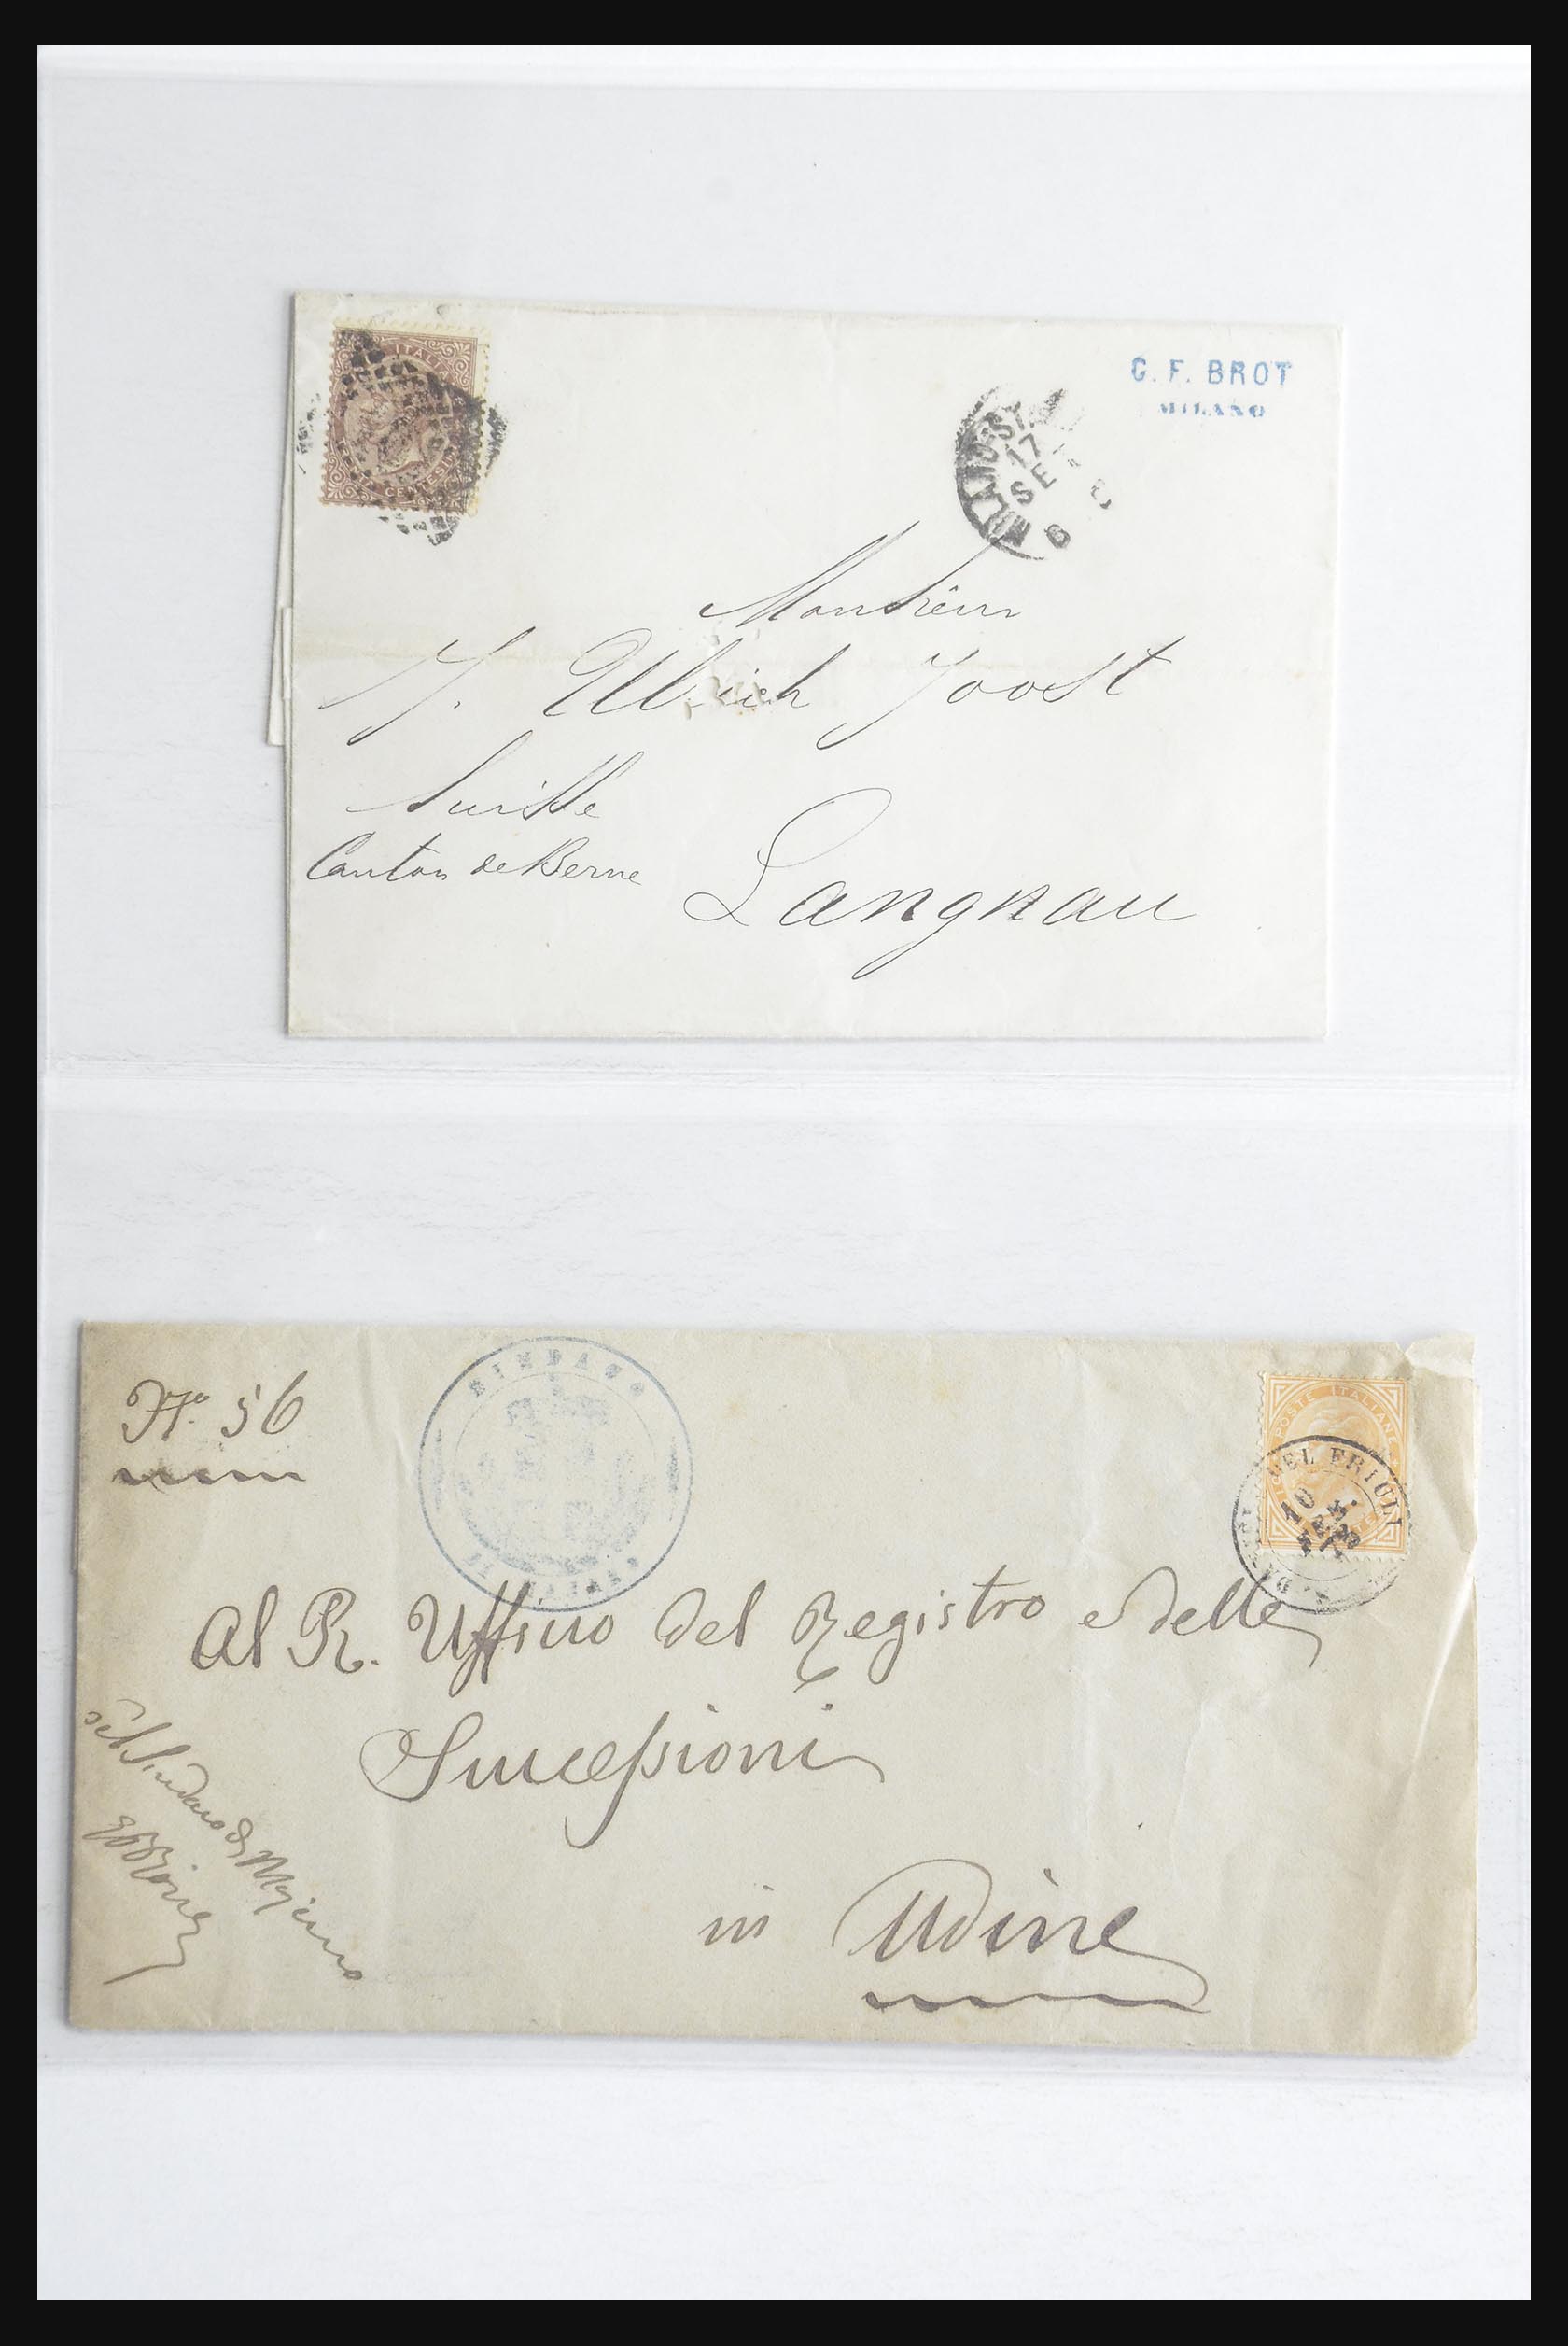 G. F. BROT
MILANO
ITALI
CENTESIMI
MILANO ST
17
SE
6
Monsieur
J. Ulrich Joost
Suisse
Canton de Berne
Langnau
N.º 56
SINDACO
POSTE ITALIANE
DEL FRIULI
10
FEB
Al R. Ufficio del Registro e delle
Successioni
in Udine
del Sindaco di